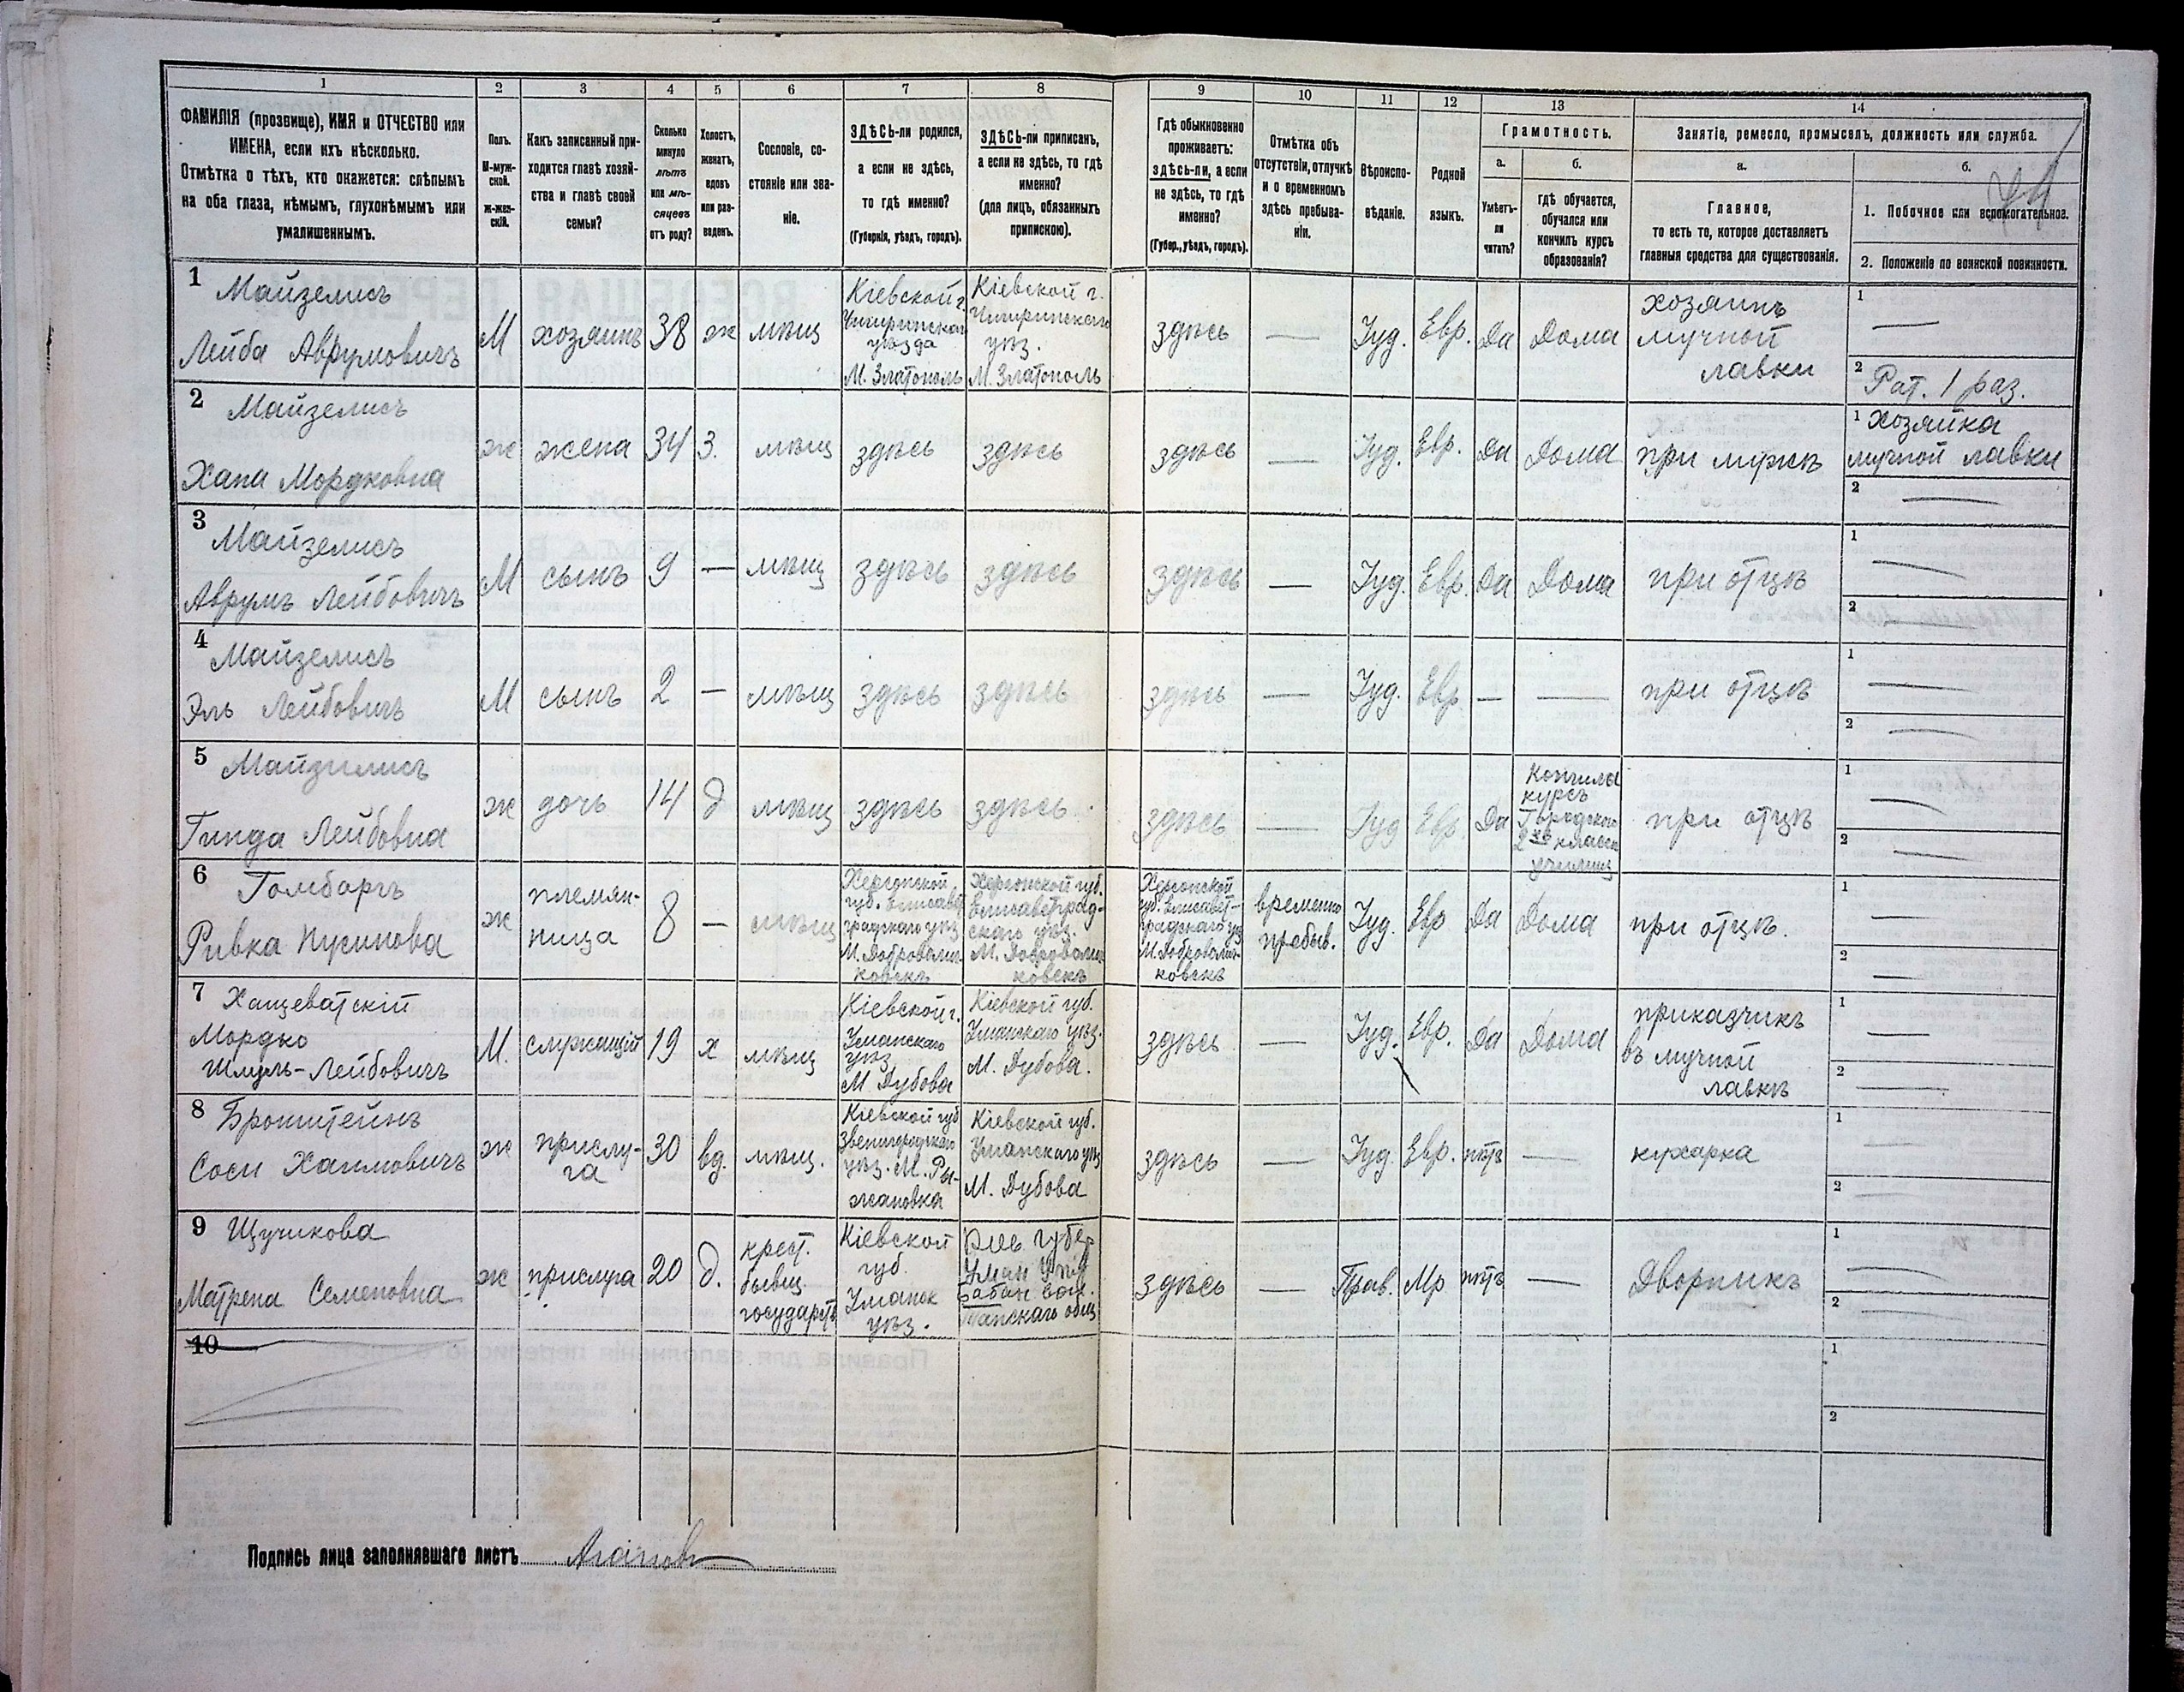 1
2
3
4
5
6
7
8
9
10
11
12
13
14
ФАМИЛІЯ (прозвище), ИМЯ и ОТЧЕСТВО или
ИМЕНА, если ихъ нѣсколько.
Отмѣтка о тѣхъ, кто окажется: слѣпымъ
на оба глаза, нѣмымъ, глухонѣмымъ или
умалишеннымъ.
Полъ.
М-муж-
ской.
Ж-жен-
скій.
Какъ записанный при-
ходится главѣ хозяй-
ства и главѣ своей
семьи?
Сколько
минуло
лѣтъ
или мѣ-
сяцевъ
отъ роду?
Холостъ,
женатъ,
вдовъ
или раз-
веденъ.
Сословіе, со-
стояніе или зва-
ніе.
ЗДѢСЬ-ли родился,
а если не здѣсь,
то гдѣ именно?
(Губернія, уѣздъ, городъ).
ЗДѢСЬ-ли приписанъ,
а если не здѣсь, то гдѣ
именно?
(для лицъ, обязанныхъ
припискою).
Гдѣ обыкновенно
проживаетъ:
здѣсь-ли, а если
не здѣсь, то гдѣ
именно?
(Губер., уѣздъ, городъ).
Отмѣтка объ
отсутствіи, отлучкѣ
и о временномъ
здѣсь пребыва-
ніи.
Вѣроиспо-
вѣданіе.
Родной
языкъ.
Грамотность.
а.
Умѣетъ-
ли
читать?
б.
гдѣ обучается,
обучался или
кончилъ курсъ
образованія?
Занятіе, ремесло, промыселъ, должность или служба.
а.
Главное,
то есть то, которое доставляетъ
главныя средства для существованія.
б.
1. Побочное или вспомогательное.
2. Положеніе по воинской повинности.
1 Майзелисъ
Лейба Аврумовичъ
М
хозяинъ
38
ж
мѣщ
Кіевской г.
Чигиринскаго
уѣзда
М. Златополь
Кіевской г.
Чигиринскаго
уѣз.
М. Златополь
здѣсь
—
Іуд.
Евр.
Да
Дома
хозяинъ
мучной
лавки
1 —
2 Рат. 1 раз.
2 Майзелисъ
Хана Мордковна
ж
жена
34
З.
мѣщ
здѣсь
здѣсь
здѣсь
—
Іуд.
Евр.
Да
Дома
при мужѣ
1 Хозяйка
мучной лавки
2 —
3 Майзелисъ
Аврумъ Лейбовичъ
М
сынъ
9
—
мѣщ
здѣсь
здѣсь
здѣсь
—
Іуд.
Евр.
Да
Дома
при отцѣ
1 —
2 —
4 Майзелисъ
Эль Лейбовичъ
М
сынъ
2
—
мѣщ
здѣсь
здѣсь
здѣсь
—
Іуд.
Евр
—
—
при отцѣ
1 —
2 —
5 Майзилисъ
Гинда Лейбовна
ж
дочь
14
д
мѣщ
здѣсь
здѣсь
здѣсь
—
Іуд
Евр
Да
Кончила
курсъ
Городского
2хъ класн
училищ
при отцѣ
1 —
2 —
6 Гомбаргъ
Ривка Нусинова
ж
племян-
ница
8
—
мѣщ
Херсонской
губ. Елисавет
градскаго уѣз
М. Добровелич
ковскъ
Херсонской губ.
Елисаветград-
скаго уѣз.
М. Добровелич
ковскъ
Херсонской
губ. Елисавет-
градскаго уѣз
М. Добровелич-
ковскъ
временно
пребыв.
Іуд.
Евр
Да
Дома
при отцѣ.
1 —
2 —
7 Хащеватскій
Мордко
Шмуль-Лейбовичъ
М.
служащій
19
х
мѣщ
Кіевской г.
Уманскаго
уѣз
М Дубова
Кіевской губ.
Уманскаго уѣз.
М. Дубова.
здѣсь
—
Іуд.
Евр.
Да
Дома
приказчикъ
въ мучной
лавкѣ
1 —
2 —
8 Бронштейнъ
Соси Хаимовичъ
ж
прислу-
га
30
вд.
мѣщ.
Кіевской губ
Звенигородскаго
уѣз. М. Ры-
жановка
Кіевской губ.
Уманскаго уѣз
М. Дубова
здѣсь
—
Іуд.
Евр.
нѣтъ
—
кухарка
1 —
2 —
9 Щучикова
Матрена Семеновна
ж
прислуга
20
д.
крест.
бывш
государств
Кіевской
губ.
Уманск
уѣз.
Кіев губер
Уман уѣз
Бабан вол.
здѣсь
—
Прав.
Мр
нѣтъ
—
Дворникъ
1 —
2 —
10
1
2
Подпись лица заполнявшаго листъ